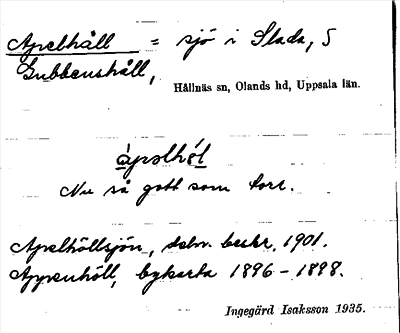 Apelhåll = sjö i Slada, S
Gubbenshåll,
Hållnäs sn, Olands hd, Uppsala län.
àpəlhó̱l
Nu så gott som torr.
Apelhållsjön, dsbr beskr. 1901.
Appenhåll, bykarta 1896-1898.
Ingegärd Isaksson 1935.